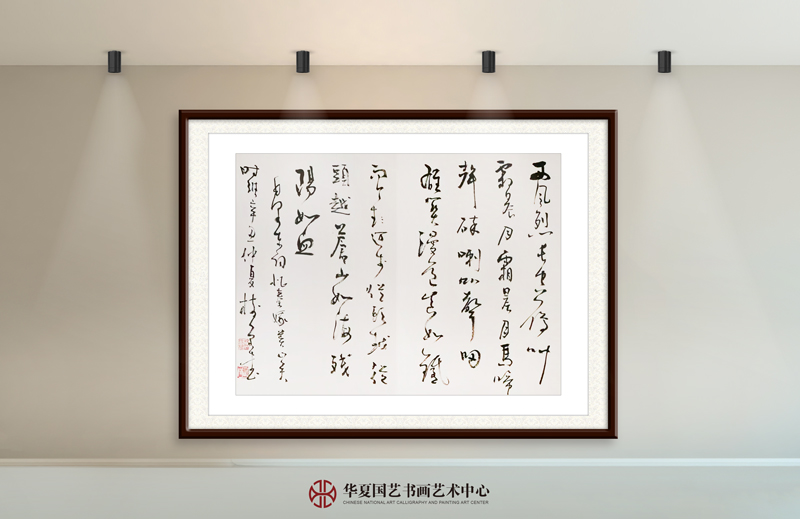 西風烈長空雁叫
霜晨月霜晨月馬蹄
聲碎喇叭聲咽
雄關漫道真如鐵
而今邁步從頭越從
頭越蒼山如海殘
陽如血
毛主席詞憶秦娥婁山關
時維辛丑仲夏
华夏国艺书画艺术中心
CHINESE NATIONAL ART CALLIGRAPHY AND PAINTING ART CENTER